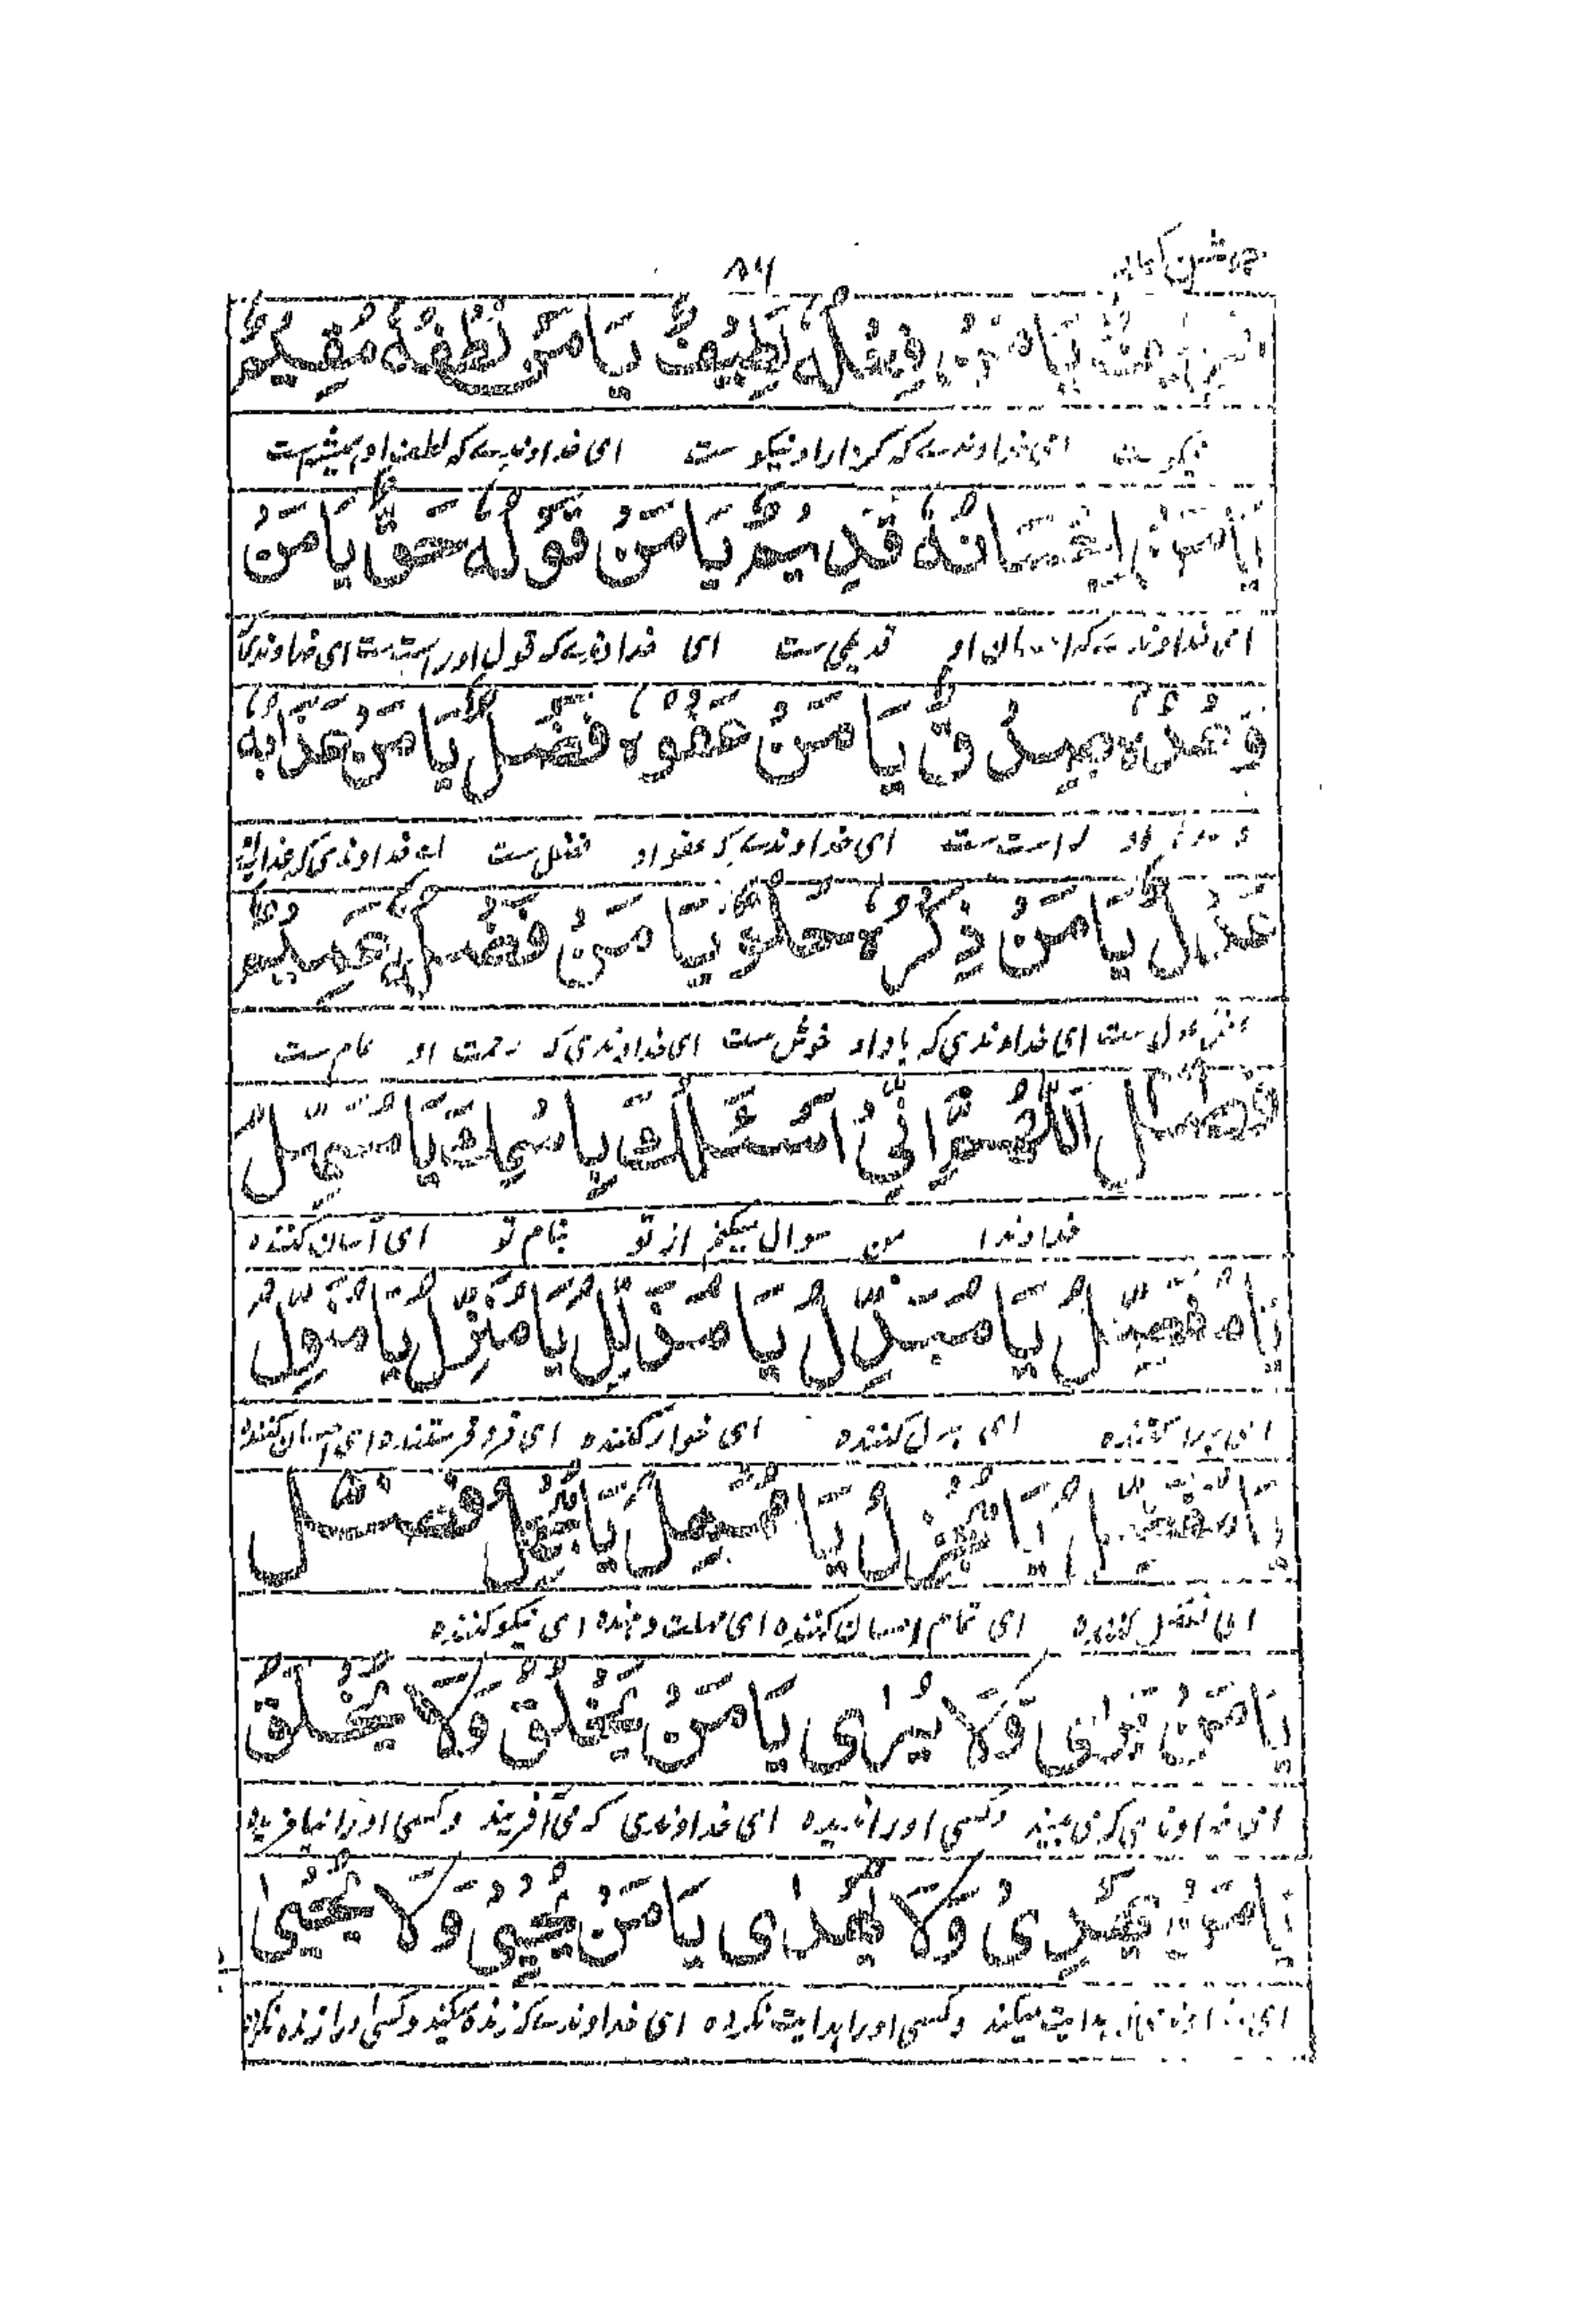 جوشن کبیر
۸۶
شَرِيفٌ يَا مَنْ فِعْلُهُ لَطِيفٌ يَا مَنْ لُطْفُهُ مُقِيمٌ
نیکوست ای خداوندے که کردار او نیکوست ای خداوندے که لطف او همیشه ست
يَا مَنْ اِحْسَانُهُ قَدِيمٌ يَا مَنْ قَوْلُهُ حَقٌّ يَا مَنْ
ای خداوندے که احسان او قدیمی ست ای خداوندے که قول او راست ست ای خداوندی که
وَعْدُهُ صِدْقٌ يَا مَنْ عَفْوُهُ فَضْلٌ يَا مَنْ عَذَابُهُ
وعده او راست ست ای خداوندے که عفو او فضل ست اے خداوندی که عذاب
عَدْلٌ يَا مَنْ ذِكْرُهُ حُلْوٌ يَا مَنْ فَضْلُهُ عَمِيمٌ
عدل ست ای خداوندی که یاد او خوش ست ای خداوندی که رحمت او عام ست
فصل اَللّٰهُمَّ اِنِّيْ اَسْئَلُكَ بِاسْمِكَ يَا مُسَهِّلُ
خداوندا من سوال میکنم از تو بنام تو ای آسان کننده
يَا مُفَصِّلُ يَا مُبَدِّلُ يَا مُذَلِّلُ يَا مُنَزِّلُ يَا مُنَوِّلُ
ای جدا کننده ای بدل کننده ای خوار کننده ای فرو فرستنده ای احسان کننده
يَا مُفْضِلُ يَا مُجْزِلُ يَا مُمْهِلُ يَا مُجْمِلُ فصل
ای تفضل کننده ای تمام احسان کننده ای مهلت دهنده ای نیکو کننده
يَا مَنْ يَرٰى وَلَا يُرٰى يَا مَنْ يَخْلُقُ وَلَا يُخْلَقُ
ای خداوندی که می بیند و کسی او را ندیده ای خداوندی که می آفریند و کسی او را نیافریده
يَا مَنْ يَهْدِيْ وَلَا يُهْدٰى يَا مَنْ يُحْيِيْ وَلَا يُحْيٰى
ای خداوندی که هدایت میکند و کسی او را هدایت نکرده ای خداوندے که زنده میکند و کسی او را زنده نکرده